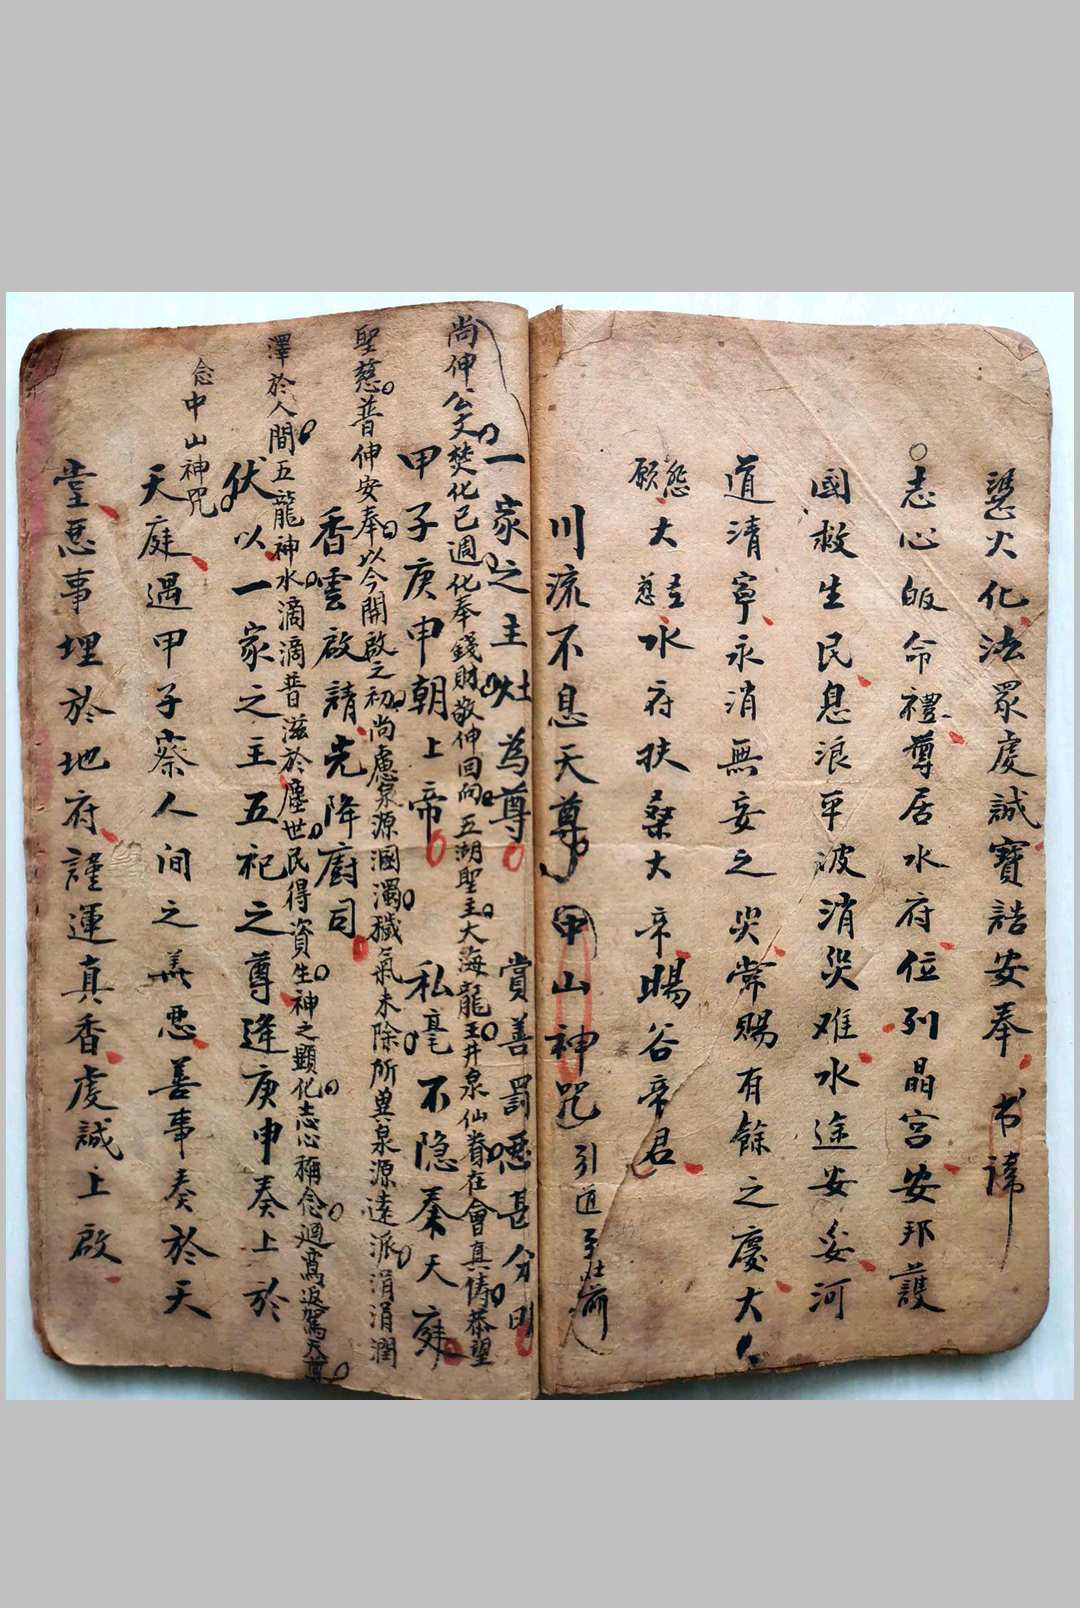 凴火化法眾虔誠寶誥安奉书諱
志心皈命禮尊居水府位列晶宮安邦護
國救生民息浪平波消災难水途安妥河
道清寧永消無妄之災常賜有餘之慶大
愿大慈水府扶桑大帝賜谷帝君
川流不息天尊中山神咒引道至灶前
一家之主灶為尊賞善罰惡甚分明
尚伸公文焚化已週化奉錢財敬伸回向五湖聖主大海龍王井泉仙眷在會真俦恭望
甲子庚申朝上帝私毫不隐奏天庭
聖慈普伸安奉以今開啟之初尚慮泉源溷濁穢氣未除所兾泉源達派涓涓潤
香雲啟請先降廚司
澤於人間五龍神水滴滴普滋於塵世民得資生神之顯化志心稱念廻鸞返駕天尊
伏以一家之主五祀之尊逢庚申奏上於
念中山神咒
天庭遇甲子察人間之善惡善事奏於天
堂惡事埋於地府謹運真香虔誠上啟